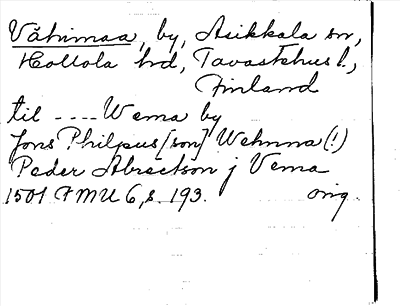 Vähimaa, by, Asikkala sn,
Hollola hd, Tavastehus l.,
Finland
til ---- Wema by
Jons Philpus[son] Wehmma (!)
Peder Abrectson j Vema
1501 FMU 6, s. 193. orig.